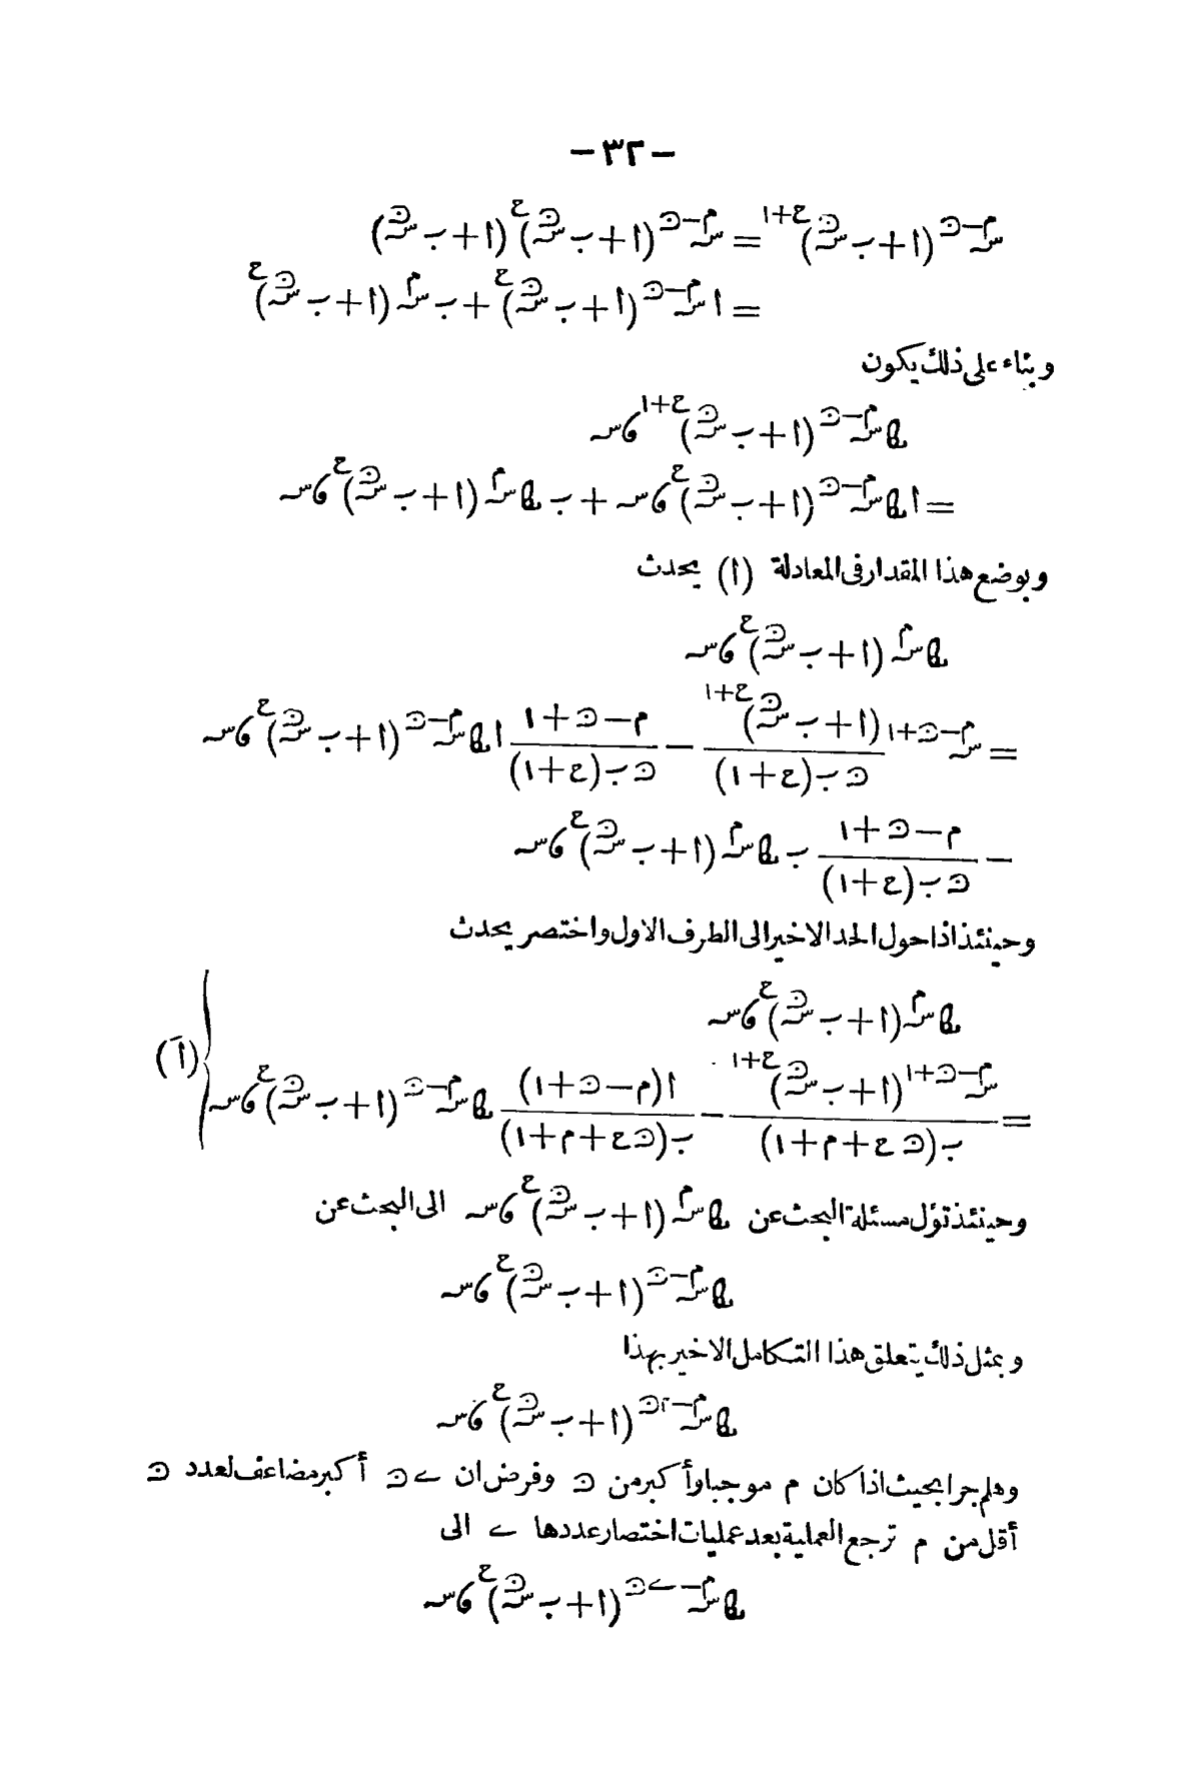 — ٣٢ —
س^(م−ن) (ا + ب س^ن)^(ع+١) = س^(م−ن) (ا + ب س^ن)^ع (ا + ب س^ن)
= ا س^(م−ن) (ا + ب س^ن)^ع + ب س^م (ا + ب س^ن)^ع
وبناء على ذلك يكون
ﻬﺎ س^(م−ن) (ا + ب س^ن)^(ع+١) ءس
= ا ﻬﺎ س^(م−ن) (ا + ب س^ن)^ع ءس + ب ﻬﺎ س^م (ا + ب س^ن)^ع ءس
وبوضع هذا المقدار فى المعادلة (ا) يحدث
ﻬﺎ س^م (ا + ب س^ن)^ع ءس
= س^(م−ن+١) (ا + ب س^ن)^(ع+١) / ن ب (ع+١) − (م − ن + ١) / ن ب (ع+١) ا ﻬﺎ س^(م−ن) (ا + ب س^ن)^ع ءس
− (م − ن + ١) / ن ب (ع+١) ب ﻬﺎ س^م (ا + ب س^ن)^ع ءس
وحينئذ اذا حول الحد الاخير الى الطرف الاول واختصر يحدث
ﻬﺎ س^م (ا + ب س^ن)^ع ءس
= س^(م−ن+١) (ا + ب س^ن)^(ع+١) / ب (ن ع + م + ١) − ا (م − ن + ١) / ب (ن ع + م + ١) ﻬﺎ س^(م−ن) (ا + ب س^ن)^ع ءس } (اَ)
وحينئذ تؤل مسئلة البحث عن ﻬﺎ س^م (ا + ب س^ن)^ع ءس الى البحث عن
ﻬﺎ س^(م−ن) (ا + ب س^ن)^ع ءس
وبمثل ذلك يتعلق هذا التكامل الاخير بهذا
ﻬﺎ س^(م−٢ن) (ا + ب س^ن)^ع ءس
وهلم جرا بحيث اذا كان م موجبا وأكبر من ن وفرض ان ے ن أكبر مضاعف لعدد ن
أقل من م ترجع العملية بعد عمليات اختصار عددها ے الى
ﻬﺎ س^(م−ے ن) (ا + ب س^ن)^ع ءس